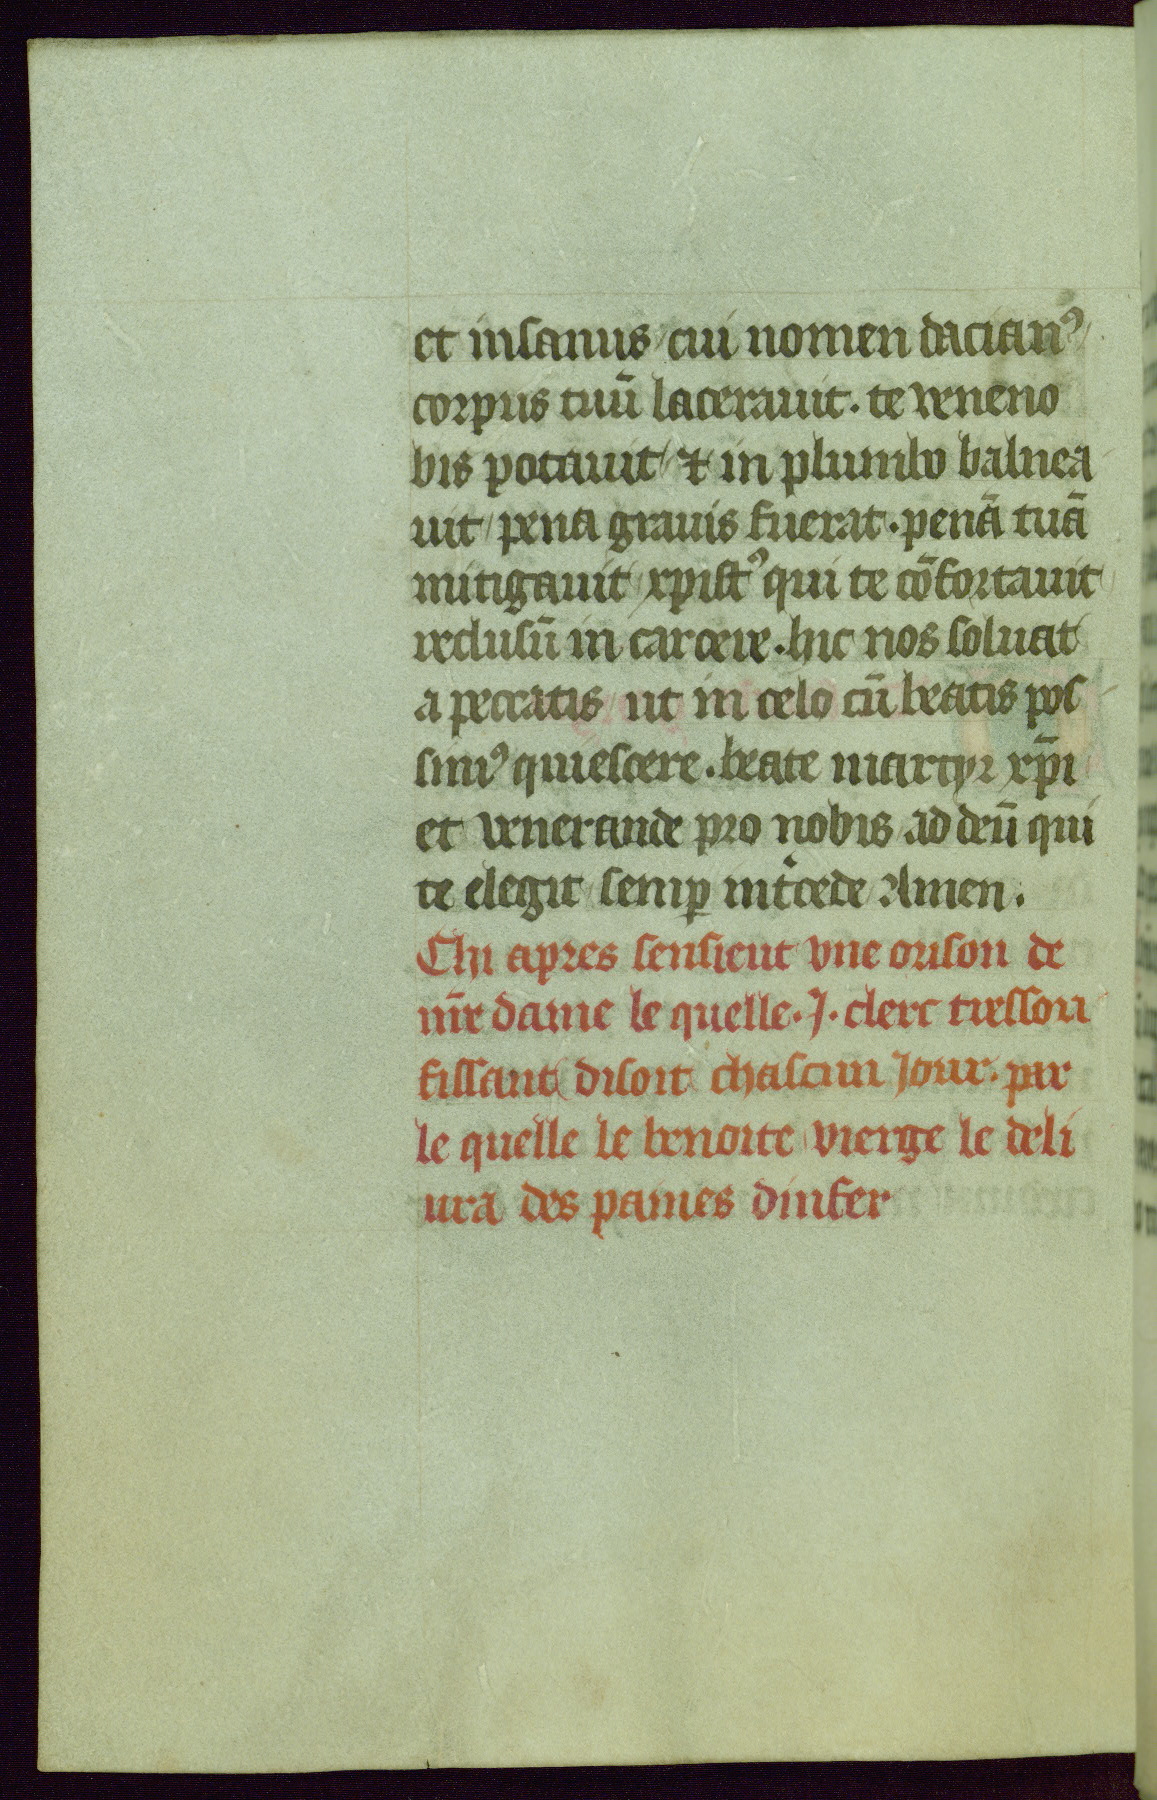 et insanus cui nomen dacianꝰ
corpus tuū lacerauit. te veneno
bis potauit ⁊ in plumbo balnea
uit pena grauis fuerat. penā tuā
mitigauit xpistꝰ qui te cōfortauit
reclusū in carcere. hic nos soluat
a peccatis ut in celo cū beatis pos
simꝰ quiescere. beate martyr xp̄i
et venerande pro nobis ad deū qui
te elegit semꝑ int̾cede Amen.
Chi apres sensieut vne orison de
nr̄e dame le quelle. J. clerc tressou
fissant disoit chascun Jour. par
le quelle le benoite vierge le deli
ura des paines dinfer